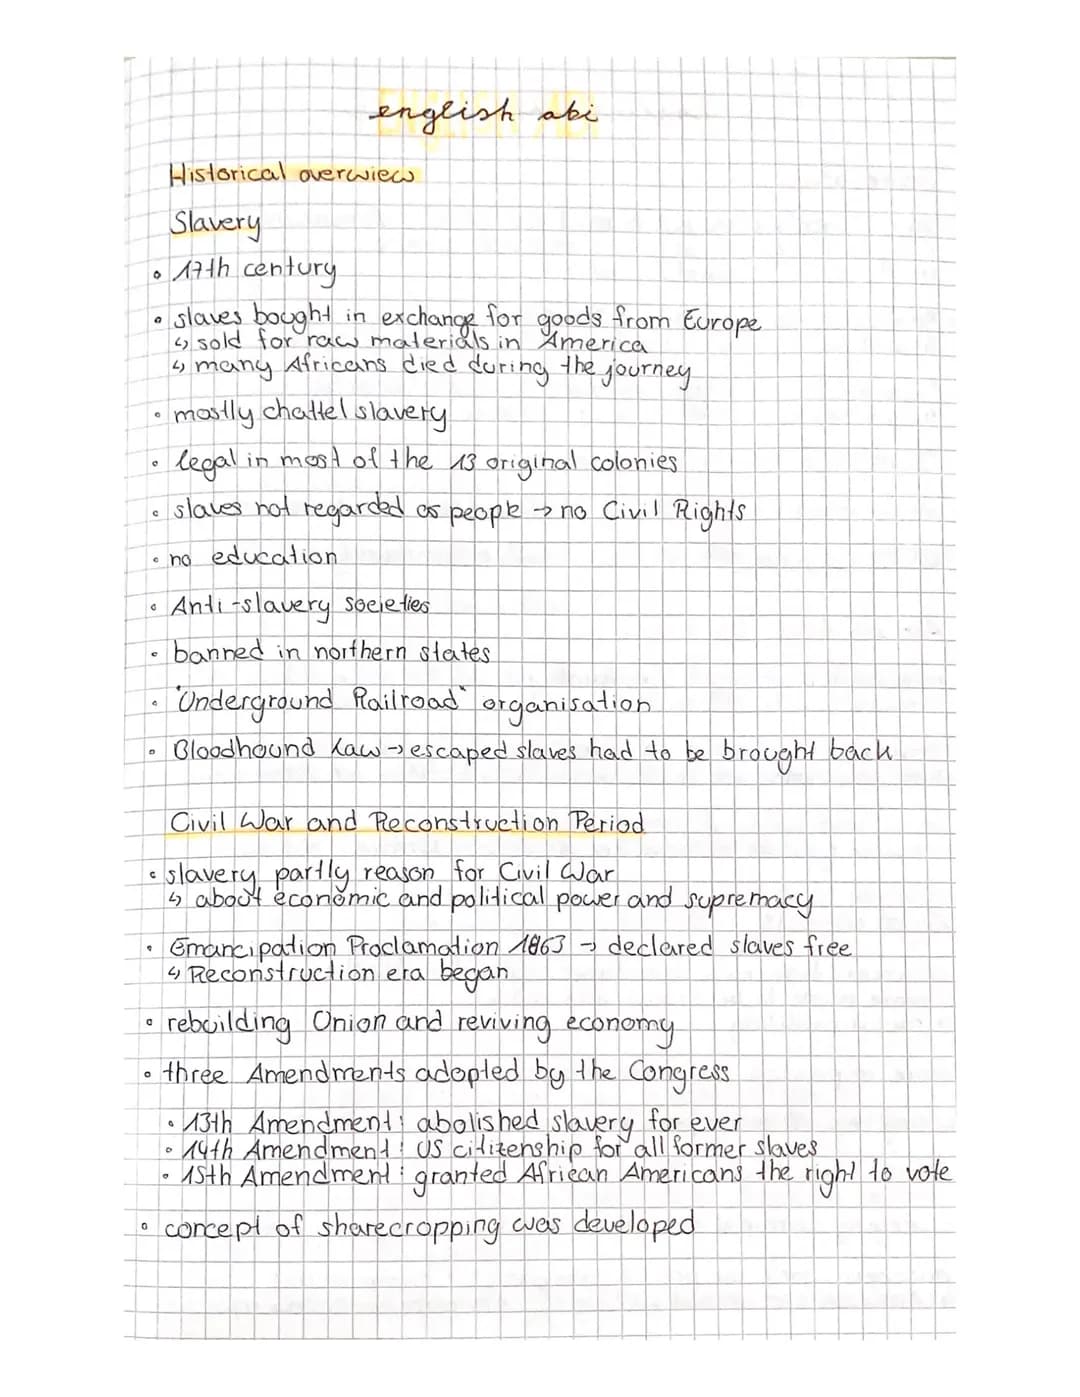 english abi
Historical overwiew
Slavery
• 17th century
• slaves bought in exchange for goods from Europe
↳ sold for raw materials in America
↳ many Africans died during the journey
• mostly chattel slavery
• legal in most of the 13 original colonies
• slaves not regarded as people → no Civil Rights
• no education
• Anti-slavery societies
• banned in northern states
• "Underground Railroad" organisation
• Bloodhound Law → escaped slaves had to be brought back
Civil War and Reconstruction Period
• slavery partly reason for Civil War
↳ about economic and political power and supremacy
• Emancipation Proclamation 1863 → declared slaves free
↳ Reconstruction era began
• rebuilding Union and reviving economy
• three Amendments adopted by the Congress
• 13th Amendment: abolished slavery for ever
• 14th Amendment: US cititzenship for all former slaves
• 15th Amendment: granted African Americans the right to vote
• concept of sharecropping was developed